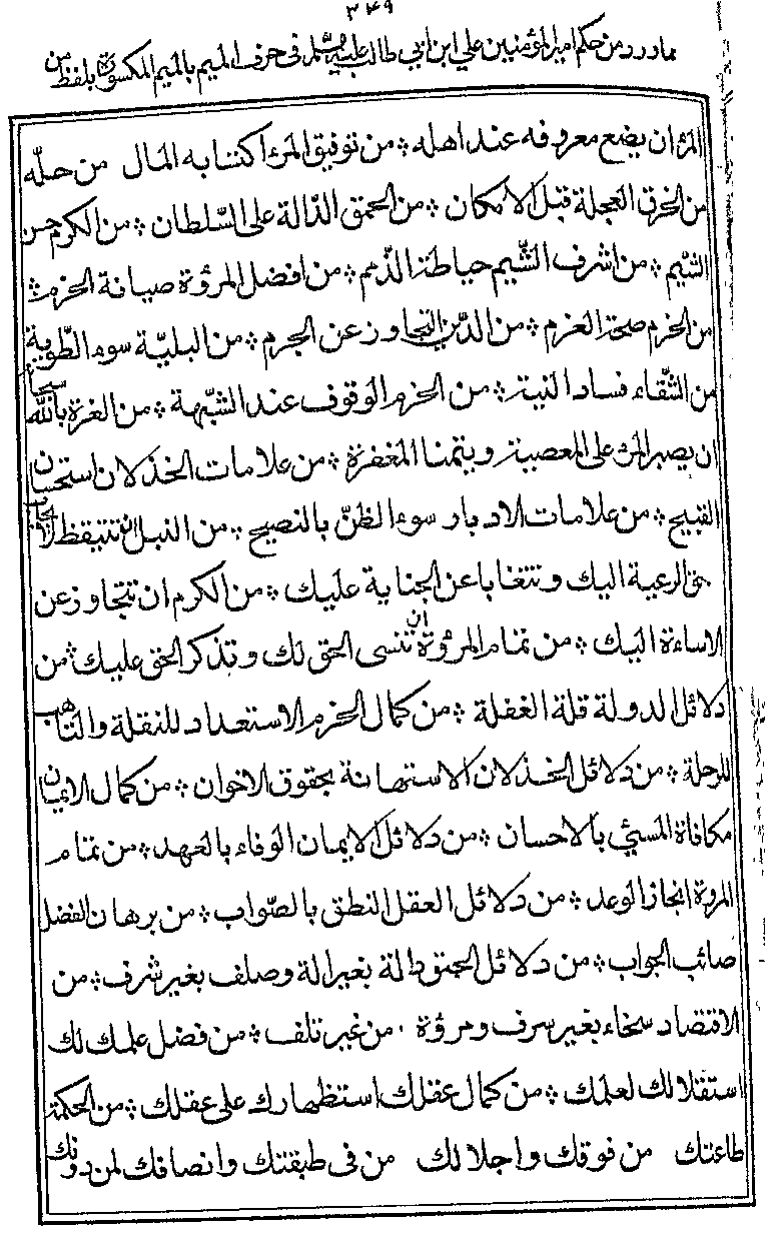 ٣٤٩
مما ورد من حكم امير المؤمنين علي ابن ابي طالب عليه السلام في حرف الميم بالميم المكسورة بلفظ من
المرء ان يضع معروفه عند اهله ؞ من توفيق المرء اكتسابه المال من حلّه
من الخرق العجلة قبل الامكان ؞ من الحمق الدّالة على السّلطان ؞ من الكرم حسن
الشيم ؞ من اشرف الشّيم حياطة الذّمم ؞ من افضل المروّة صيانة الحزم ؞
من الحزم صحة العزم ؞ من الدّين التجاوز عن الجرم ؞ من البليّة سوء الطّوية
من الشّقاء فساد النية ؞ من الحزم الوقوف عند الشّبهة ؞ من الغرة بالله سبحانه
ان يصر المرء على المعصية ويتمنا المغفرة ؞ من علامات الخذلان استحسان
القبيح ؞ من علامات الادبار سوء الظنّ بالنصيح ؞ من النبل ان تتيقظ لايجاب
حق الرعية اليك وتتغابا عن الجناية عليك ؞ من الكرم ان تتجاوز عن
الاساءة اليك ؞ من تمام المروّة ان تنسى الحق لك وتذكر الحق عليك ؞ من
دلائل الدولة قلة الغفلة ؞ من كمال الحزم الاستعداد للنقلة والتاهب
للرحلة ؞ من دلائل الخذلان الاستهانة بحقوق الاخوان ؞ من كمال الايمان
مكافاة المسئي بالاحسان ؞ من دلائل الايمان الوفاء بالعهد ؞ من تمام
المروة انجاز الوعد ؞ من دلائل العقل النطق بالصّواب ؞ من برهان الفضل
صائب الجواب ؞ من دلائل الحمق دالة بغير الة وصلف بغير شرف ؞ من
الاقتصاد سخاء بغير سرف ومروّة من غير تلف ؞ من فضل علمك لك
استقلالك لعلمك ؞ من كمال عقلك استظهارك على عقلك ؞ من الحكمة
طاعتك من فوقك واجلالك من في طبقتك وانصافك لمن دونك